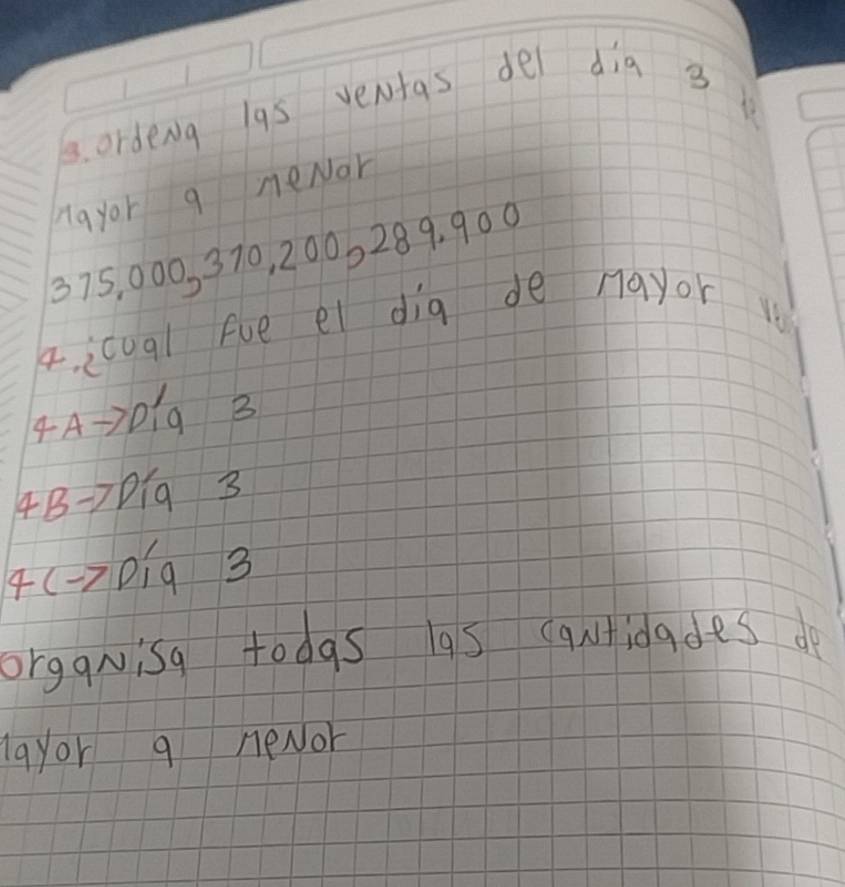 3. ordena las ventas del día 3 de
mayor a menor
375.000, 370.200, 289.900
4. ¿cual fue el día de mayor
4A → Día 3
4B → Día 3
4C → Día 3
organisa todas las cantidades de
mayor a menor